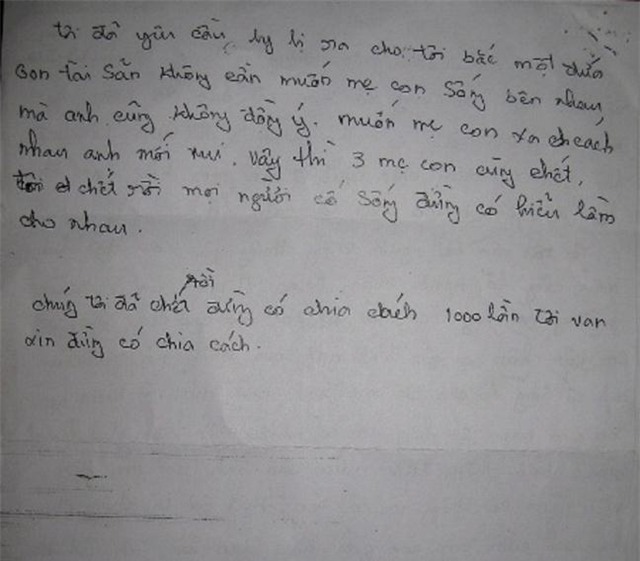 tôi đã yêu cầu ly lị xa cho tôi bắc một đứa
con tài sản không cần muốn mẹ con sống bên nhau
mà anh cũng không đồng ý. muốn mẹ con xa chcách
nhau anh mới vui. vậy thì 3 mẹ con cùng chết,
tôi chết rồi mọi người cố sống đừng có hiểu lầm
cho nhau.
rồi
chúng tôi đã chết đừng có chia cách 1000 lần tôi van
xin đừng có chia cách.